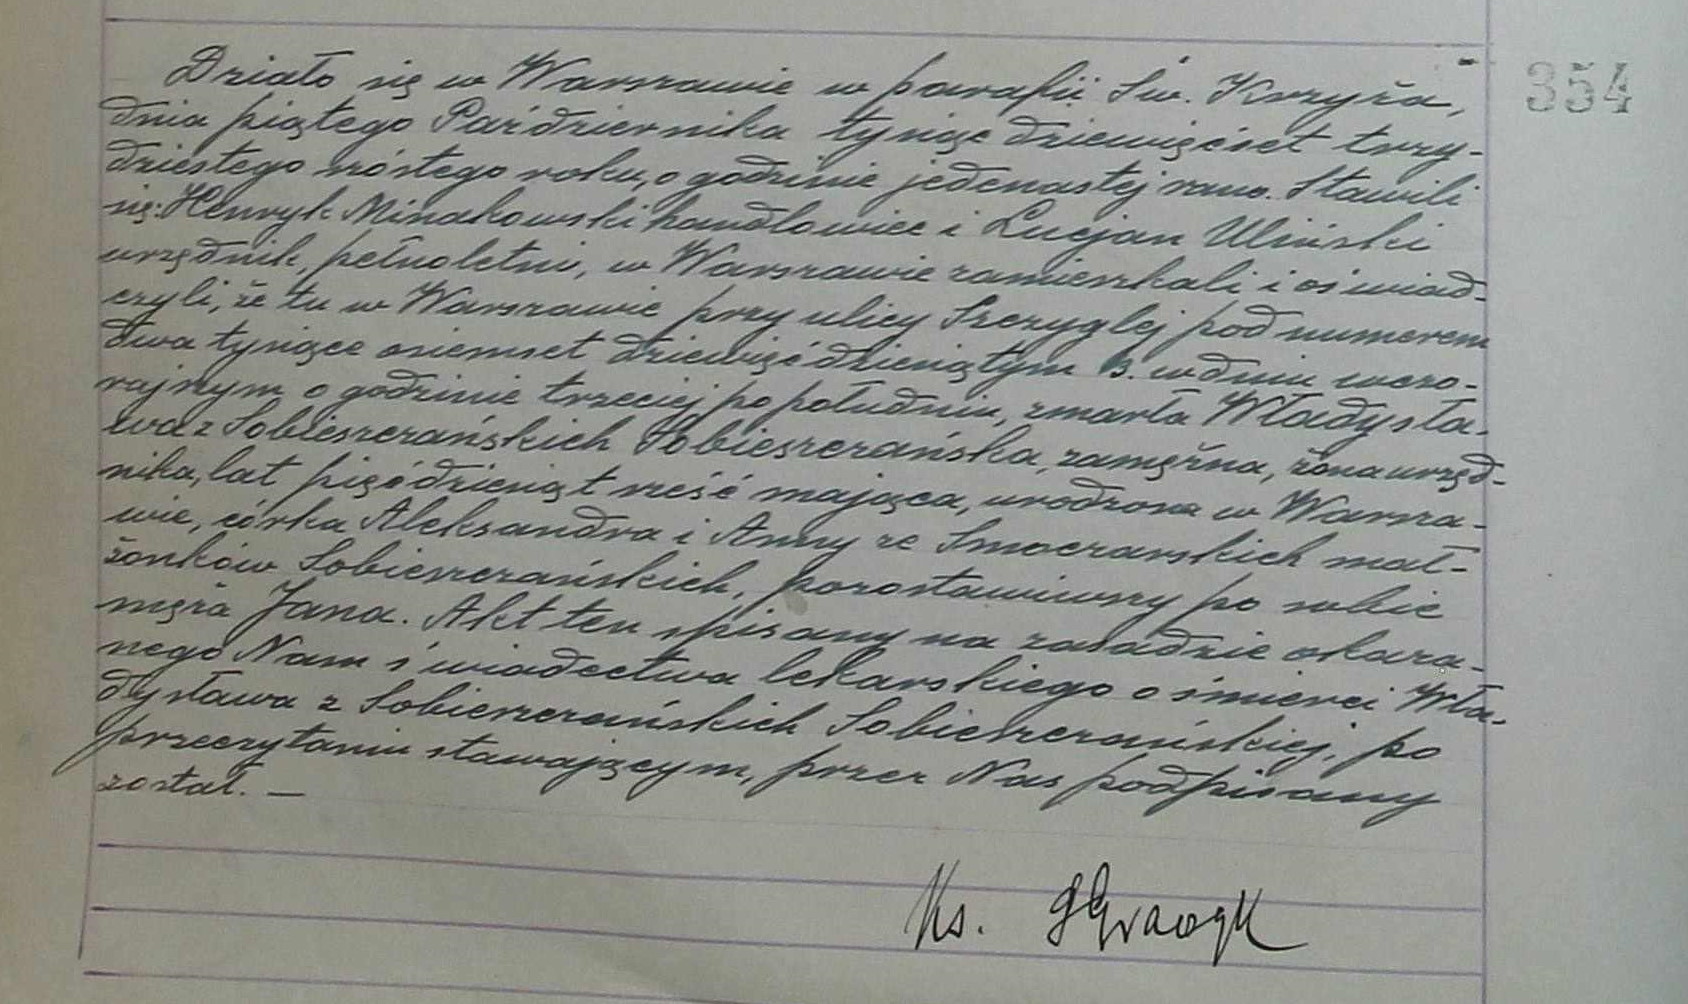 354
Działo się w Warszawie w parafii Św. Krzyża,
dnia piątego Października tysiąc dziewięćset trzy-
dziestego szóstego roku, o godzinie jedenastej rano. Stawili
się: Henryk Minakowski handlowiec i Lucjan Uliński
urzędnik, pełnoletni, w Warszawie zamieszkali i oświad-
czyli, że tu w Warszawie przy ulicy Szczyglej pod numerem
dwa tysiące osiemset dziewięćdziesiątym B. w dniu wczo-
rajszym o godzinie trzeciej po południu, zmarła Władysła-
wa z Sobieszczańskich Sobieszczańska, zamężna, żona urzęd-
nika, lat pięćdziesiąt sześć mająca, urodzona w Warsza-
wie, córka Aleksandra i Anny ze Smoczarskich mał-
żonków Sobieszczańskich, pozostawiwszy po sobie
męża Jana. Akt ten spisany na zasadzie okaza-
nego Nam świadectwa lekarskiego o śmierci Wła-
dysława z Sobieszczańskich Sobieszczańskiej, po
przeczytaniu stawającym, przez Nas podpisany
został. —
Ks.